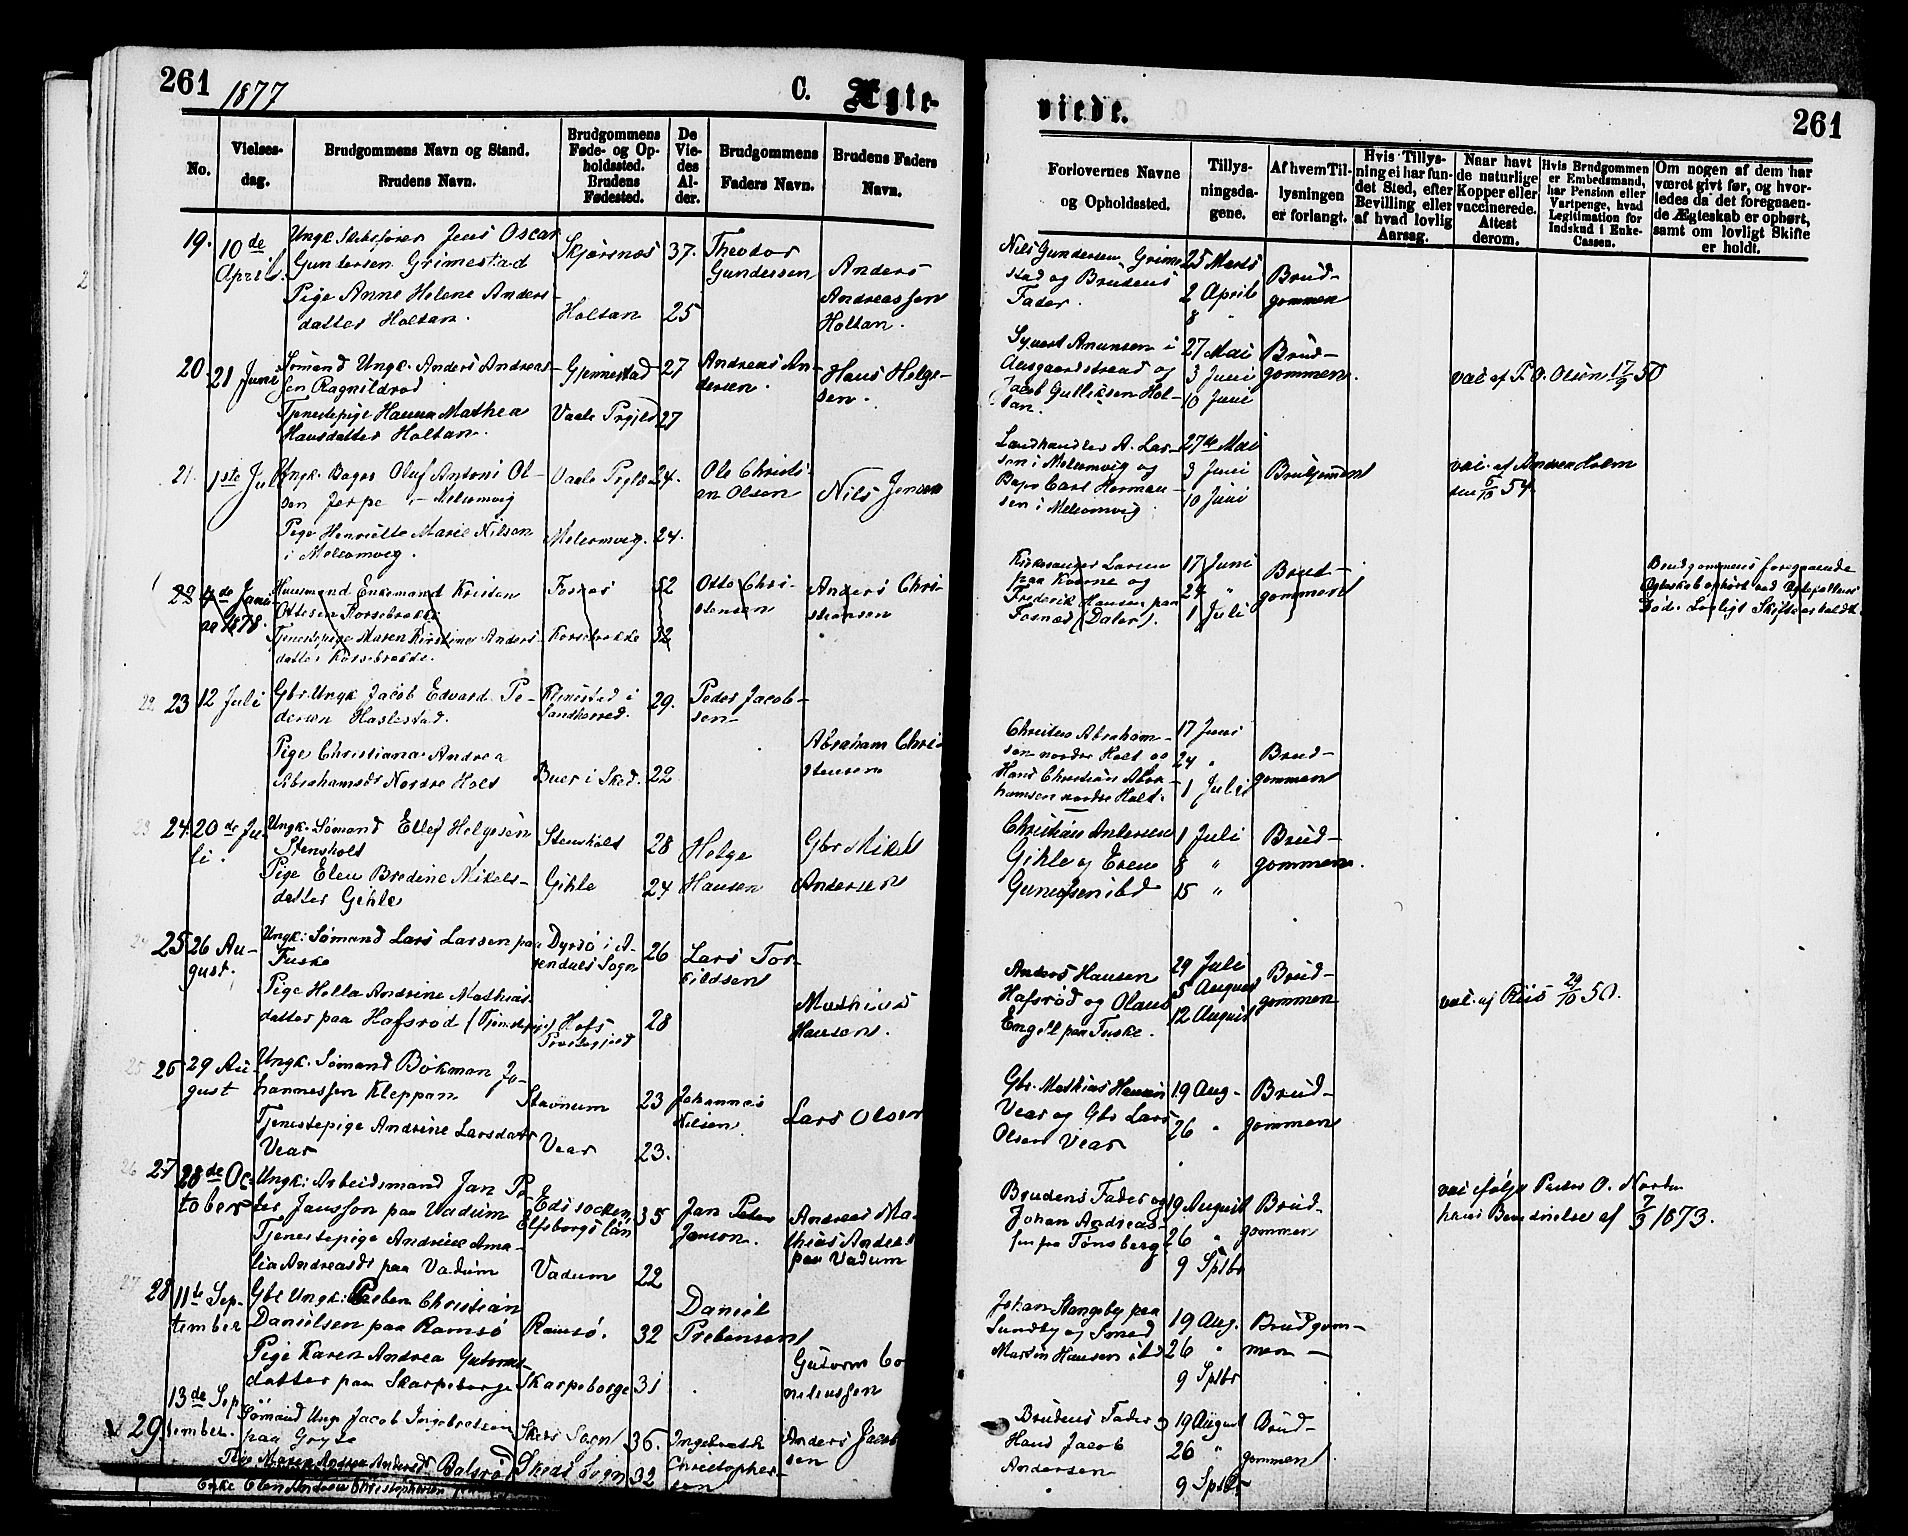 261
1877
C. Ægte-
No.
Vielses-
dag.
Brudgommens Navn og Stand.
Brudens Navn.
Brudgommens
Føde- og Op-
holdssted.
Brudens
Fødested.
De
Vie-
des
Al-
der.
Brudgommens
Faders Navn.
Brudens Faders
Navn.
19.
10de
April.
Ungk Skibsfører Jens Oscar
Gundersen Grimestad
Pige Anne Helene Anders-
datter Holtan.
Skjærsnes
Holtan
37.
25
Theodor
Gundersen
Anders
Andreassen
Holtan.
20
21 Juni
Sømand Ungk. Anders Andreas-
sen Ragnildrød
Tjenestepige Hanna Mathea
Hansdatter Holtan.
Gjennestad
Vaale Prgjeld
27
27
Andreas An-
dersen.
Hans Helge-
sen.
21.
1ste Juli
Ungk. Bager Oluf Antoni Ol-
sen Jerpe i Melsomvig
Pige Henriette Marie Nilsen
i Melsomvig.
Melsomvig.
24.
24.
Ole Christi-
an Olsen
Nils Jensen
22
4de Janu
ar 1878.
Huusmand Enkemand Kristen
Ottesen Korsebrekke
Tjenestepige Maren Kirstine Anders-
datter Korsebrekke.
Fosnes
Korsebrekke
52
32
Otto Chri-
stensen
Anders Chri-
stiansen
22 23
12 Juli
Gbr. Ungk Jacob Edvard Pe-
dersen Haslestad.
Pige Christiana Andrea
Abrahamsdr Nordre Holt
Sandherred.
Buer i Sked.
29.
22
Peder Jacob-
sen
Abraham Chri-
stensen
23 24.
20de Ju-
li.
Ungk. Sømand Ellef Helgesen
Stensholt
Pige Elen Bredine Mikels-
datter Gihle
Stensholt
Gihle
28
24
Helge
Hansen
Gbr Mikel
Andersen
25
26 Au-
gust.
Ungk: Sømand Lars Larsen paa
Fuske
Pige Hella Andrine Mathias-
datter paa Hafsrød (Tjenestepige)
Dyrsø i A-
rendals Sogn
Hofs
Prestegjeld
26
28
Lars Tor-
kildsen
Mathias
Hansen.
25 26
29 Au-
gust
Ungk. Sømand Bökman Jo-
hannessen Kleppan
Tjenestepige Andrine Larsdatr
Vear
Stavnum
Vear
23
23.
Johannes
Nilsen
Lars Olsen
26 27
28de Oc-
tober
Ungk: Arbeidsmand Jan Pe-
ter Jansson paa Vadum
Tjenestepige Andrine Ama-
lia Andreasdr paa Vadum
Eds socken
Elfsborgs län
Vadum
35
22
Jan Peter
Janson.
Andreas Ma-
thias Andreas
paa Vadum
27 28
11te Sep-
tember
Gbr Ungk: Preben Christian
Danielsen paa Ramsø
Pige Karen Andrea Gutorms-
datter paa Skarpeborge
Ramsø.
Skarpeborge
32
31
Daniel
Prebensen
Gutorm Co
neliussen
29
13de Sep
tember.
Sømand Ung Jacob Ingebretsen
paa Gryte
Pige Maren Andrea Andersdr Balsrød
Skeds Sogn
Skeds Sogn
36.
32
Ingebreth
Christopher-
sen
Anders Jacob
sen
Enke Elen Andrea Christophersen
viede.
261
Forlovernes Navne
og Opholdssted.
Tillys-
ningsda-
gene.
Af hvem Til-
lysningen
er forlangt.
Hvis Tillys-
ning ei har fun-
det Sted, efter
Bevilling eller
af hvad lovlig
Aarsag.
Naar havt
de naturlige
Kopper eller
vaccinerede.
Attest
derom.
Hvis Brudgommen
er Embedsmand,
har Pension eller
Vartpenge, hvad
Legitimation for
Indskud i Enke-
Cassen.
Om nogen af dem har
været givt før, og hvor-
ledes da det foregaaen-
de Ægteskab er ophørt,
samt om lovligt Skifte
er holdt.
Nils Gundersen Grime
stad og Brudens
Fader.
25 Marts
2 April
8 "
Brud-
gommen
Syvert Anunsen i
Aasgaardstrand og
Jacob Gulliksen Hol-
tan.
27 Mai
3 Juni
10 Juni
Brud-
gommen.
vac af P. O. Olsen 17/9 50
Landhandler A. Lar-
sen i Melsomvig og
Bager Carl Herman-
sen i Melsomvig
27de Mai
3 Juni
10 Juni
Brudgommen
vac. af Andrea Holm
Kirkesanger Larsen
paa Kverne og
Frederik Hansen paa
Fosnæs (Daler).
17 Juni
24 "
1 Juli
Brud-
gommen
Brudgommens foregaaende
Ægteskab ophørt ved Ægtefællens
Død. Lovligt Skifte er holdt.
Christen Abraham-
sen nordre Holt og
Hans Christian Abra-
hamsen nordre Holt.
17 Juni
24 "
1 Juli
Brud-
gommen
Christian Andersen
Gihle og Even
Gunersen ibd
1 Juli
8 "
15 "
Brud-
gommen.
Anders Hansen
Hafsrød og Olaus
Engell paa Fuske.
29 Juli
5 August
12 August
Brud-
gommen
vac. af Riis 29/10 50.
Gbr. Mathias Hansen
Vear og Gbr Lars
Olsen Vear
19 Aug.
26 "
Brud-
gommen
Brudens Fader og
Johan Andreas-
sen fra Tønsberg
19 August
26 "
9 Sptbr
Brud-
gommen
vac ifølge Pastor O. Nordn
hans Bevidnelse af 7/9 1873.
Johan Stangeby paa
Sundby og Smed
Martin Hansen ibd
19 Aug.
26 "
9 Sptbr
Brudgom-
men
Brudens Fader og
Hans Jacob
Andersen
19 August
26 "
9 Sptbr
Brud-
gommen